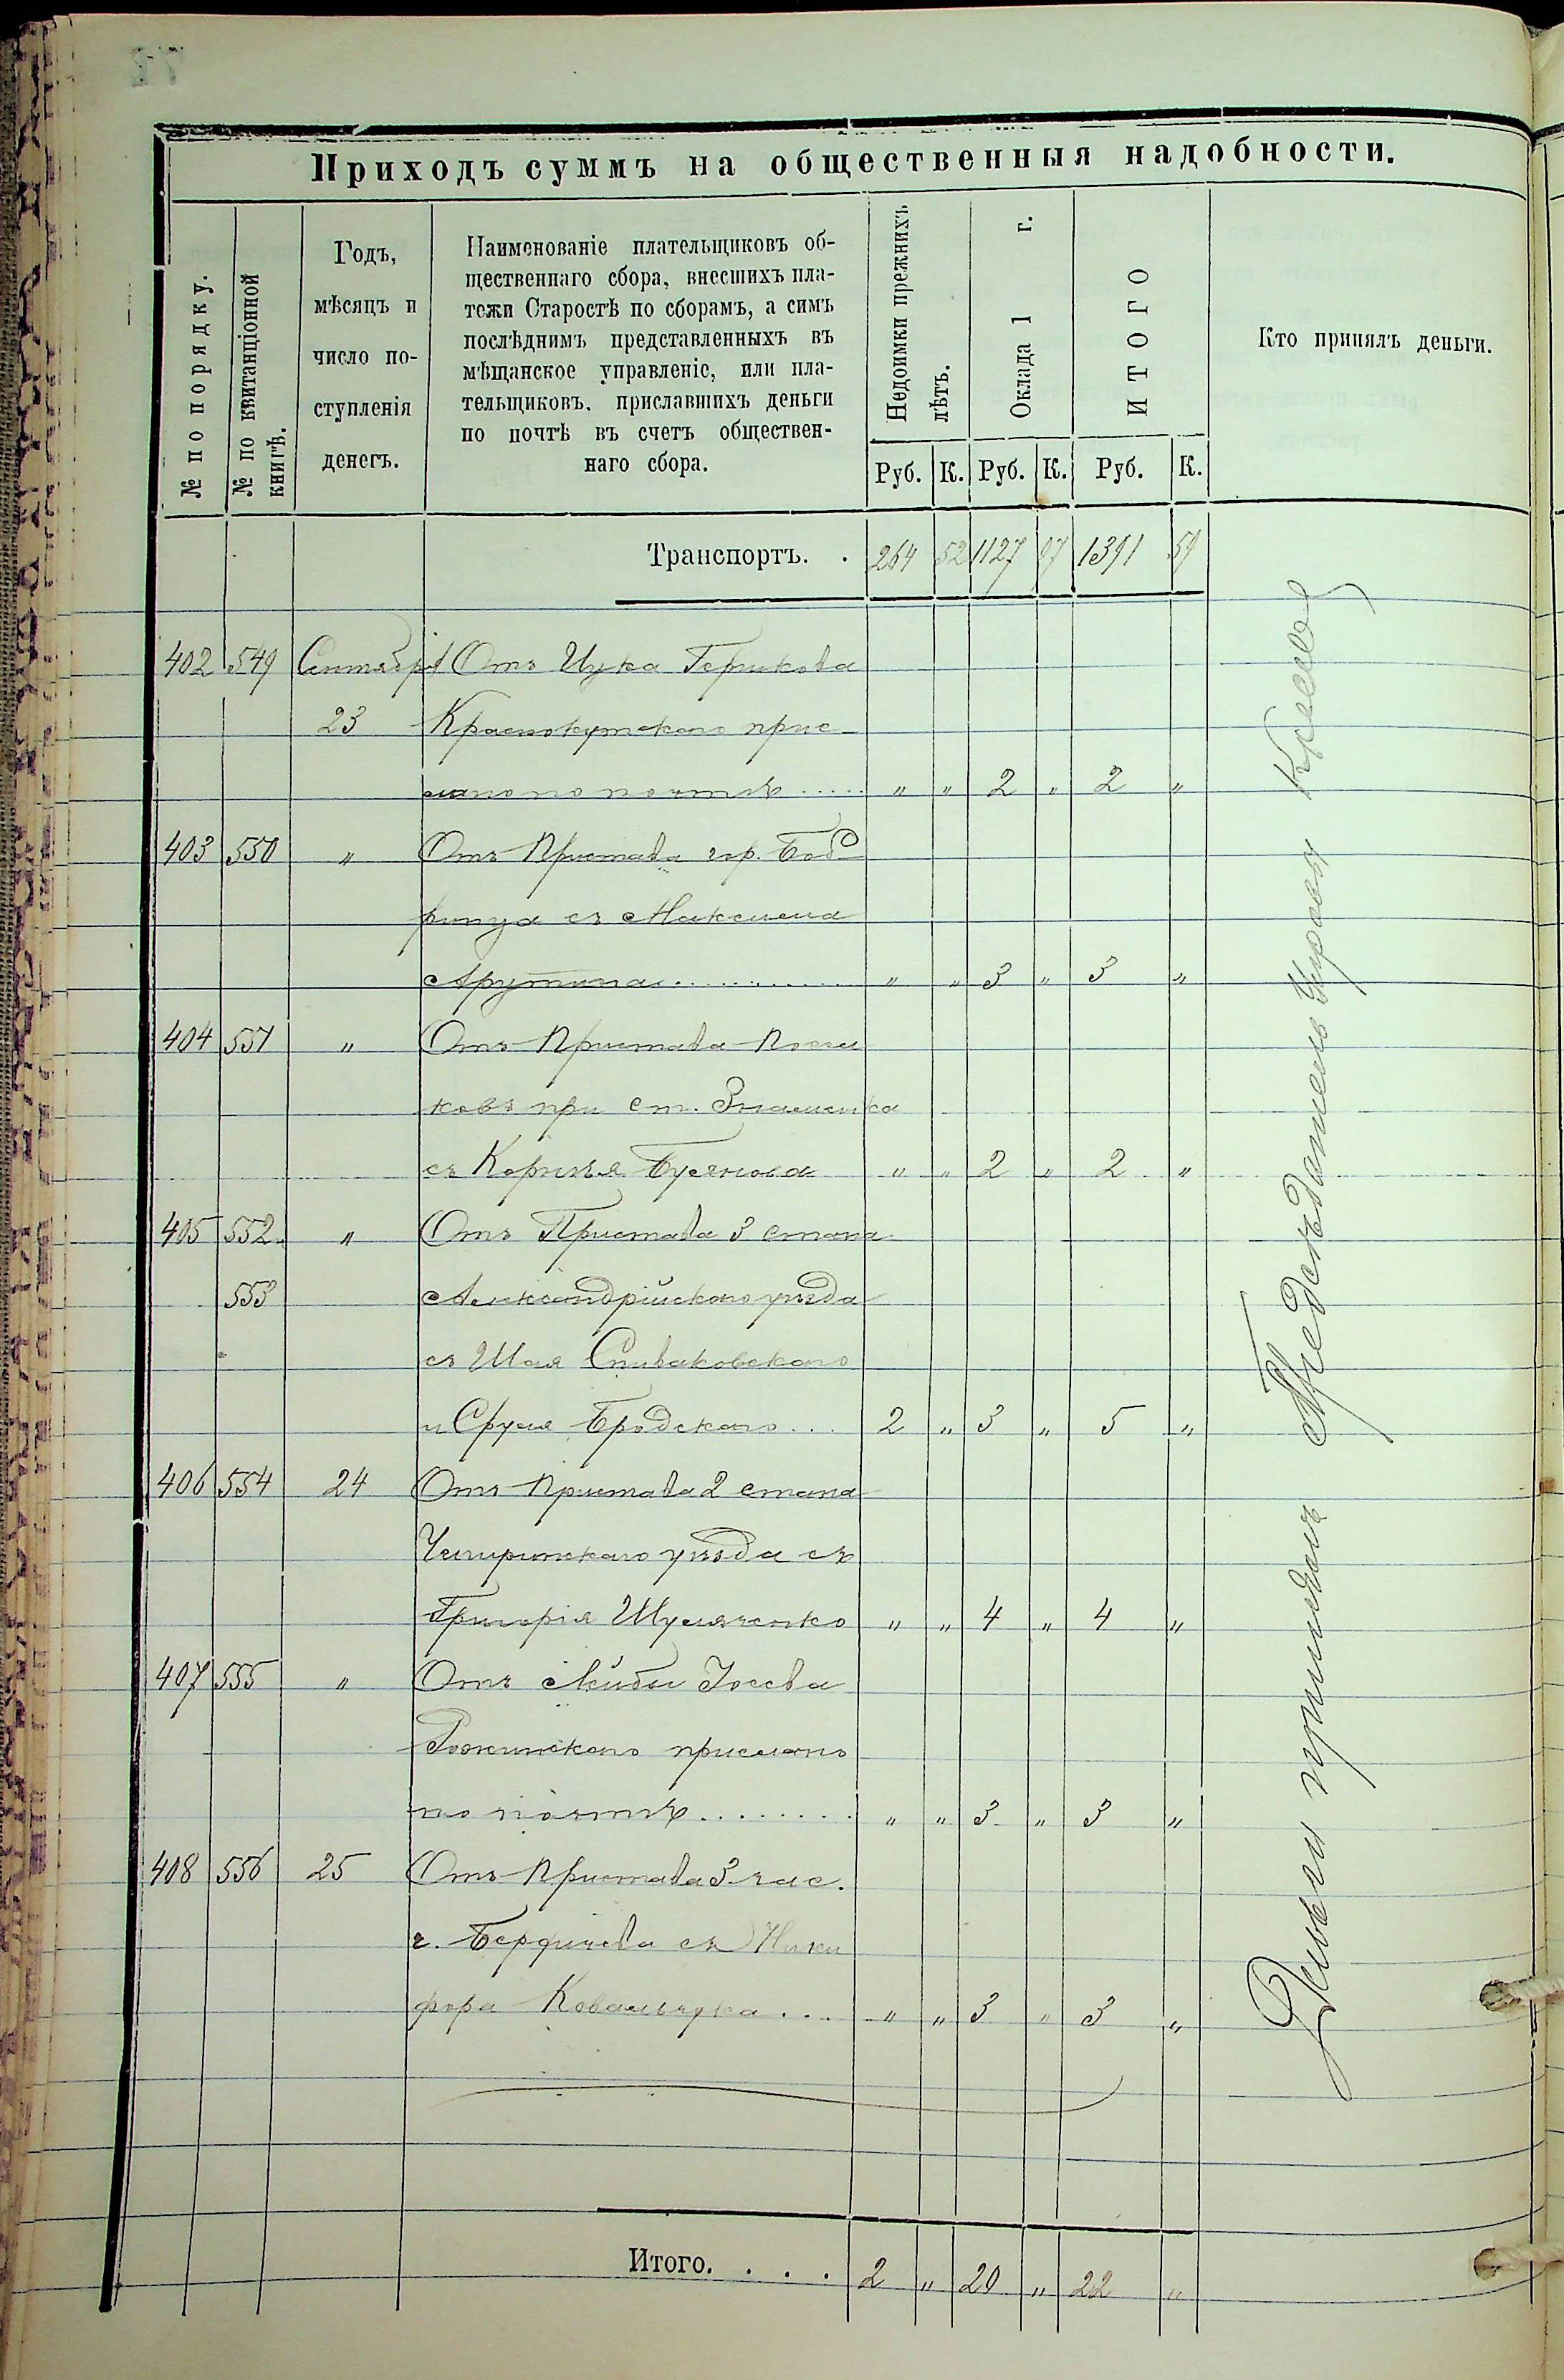 Приходъ суммъ на общественныя надобности.
№ по порядку.
№ по квитанціонной
книгѣ.
Годъ,
мѣсяцъ и
число по-
ступленія
денегъ.
Наименованіе плательщиковъ об-
щественнаго сбора, внесшихъ пла-
тежи Старостѣ по сборамъ, а симъ
послѣднимъ представленныхъ въ
мѣщанское управленіе, или пла-
тельщиковъ, приславшихъ деньги
по почтѣ въ счетъ обществен-
наго сбора.
Недоимки прежнихъ
лѣтъ.
Оклада 1 г.
ИТОГО
Кто принялъ деньги.
Руб. К. Руб. К. Руб. К.
Транспортъ. . 264 52 1127 07 1391 59
402 549 Сентября Отъ Ицка
23 Краснокутскаго прис
лано по почтѣ ..... " " 2 " 2 "
403 550 " Отъ Пристава гор. Боб
ринца съ Максима
Арутина............ " " 3 " 3 "
404 551 " Отъ Пристава Посел
ковъ при ст. Знаменка
съ Корнѣя " " 2 " 2 "
405 552 " Отъ Пристава 3 стана
553 Александрійскаго уѣзда
съ Шая Спиваковскаго
и Сруля Бродскаго ... 2 " 3 " 5 "
406 554 24 Отъ Пристава 2 стана
Чигиринскаго уѣзда съ
Григорія Шуляченко " " 4 " 4 "
407 555 " Отъ Лейбы
прислано
по почтѣ ........ " " 3 " 3 "
408 556 25 Отъ Пристава 3 час.
г. Бердичева съ Ники
фора Ковальчука ... " " 3 " 3 "
Итого. . . . 2 " 20 " 22 "
Деньги принималъ Предсѣдатель Управы